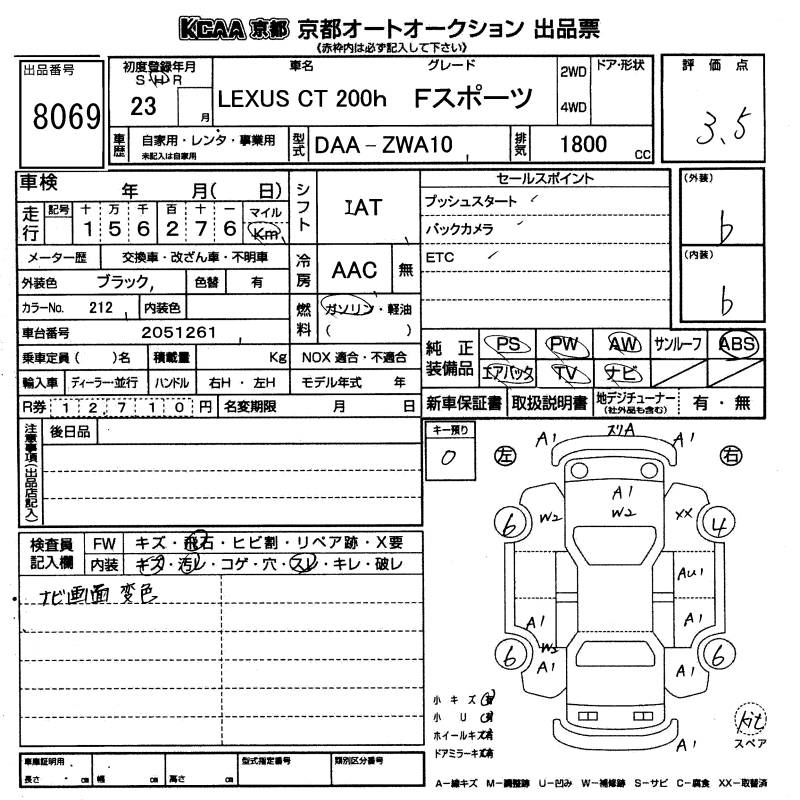 KCAA 京都 京都オートオークション 出品票
《赤枠内は必ず記入して下さい》
出品番号
8069
初度登録年月
S H R
23 月
車名 グレード
LEXUS CT 200h Fスポーツ
2WD
4WD
ドア・形状
評価点
3.5
車歴
自家用・レンタ・事業用
未記入は自家用
型式 DAA－ZWA10
排気 1800 CC
車検 年 月( 日)
走行 記号 十 万 千 百 十 一 マイル
1 5 6 2 7 6 Km
メーター歴 交換車・改ざん車・不明車
外装色 ブラック 色替 有
カラーNo. 212 内装色
車台番号 2051261
乗車定員( )名 積載量 Kg
NOX 適合・不適合
輸入車 ディーラー・並行 ハンドル 右H・左H モデル年式 年
R券 12,710円 名変期限 月 日
シフト IAT
冷房 AAC 無
燃料 ガソリン・軽油
( )
セールスポイント
プッシュスタート
バックカメラ
ETC
(外装)
b
(内装)
b
純正装備品 PS PW AW サンルーフ ABS
エアバッグ TV ナビ
新車保証書 取扱説明書 地デジチューナー(社外品も含む) 有・無
注意事項(出品店記入)
後日品
キー預り
0
左 右
A1 スリA A1
A1
W2
W2 XX
6 4
AU1
A1 A1
W2
A1 A1
6 6
A1
kit
スペア
検査員記入欄
FW キズ・飛石・ヒビ割・リペア跡・X要
内装 キズ・汚レ・コゲ・穴・スレ・キレ・破レ
ナビ画面 変色
小キズ
小U
ホイールキズ有
ドアミラーキズ有
車庫証明用 型式指定番号 類別区分番号
長さ cm 幅 cm 高さ cm
A－線キズ M－調整跡 U－凹み W－補修跡 S－サビ C－腐食 XX－取替済